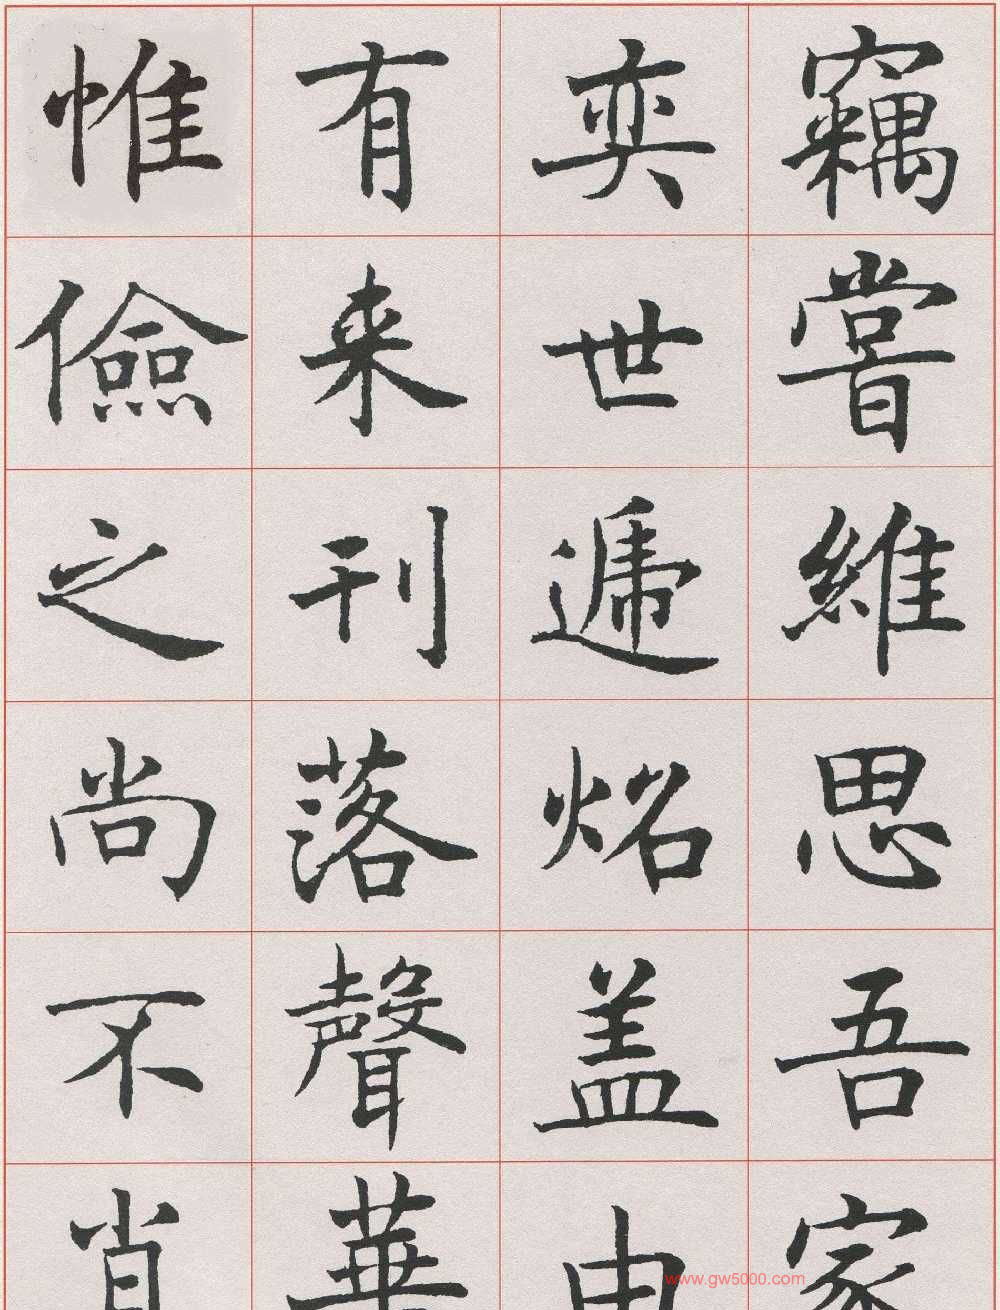 竊嘗維思吾家
奕世遞炤盖由
有来刊落聲華
惟儉之尚不肖
www.gw5000.com